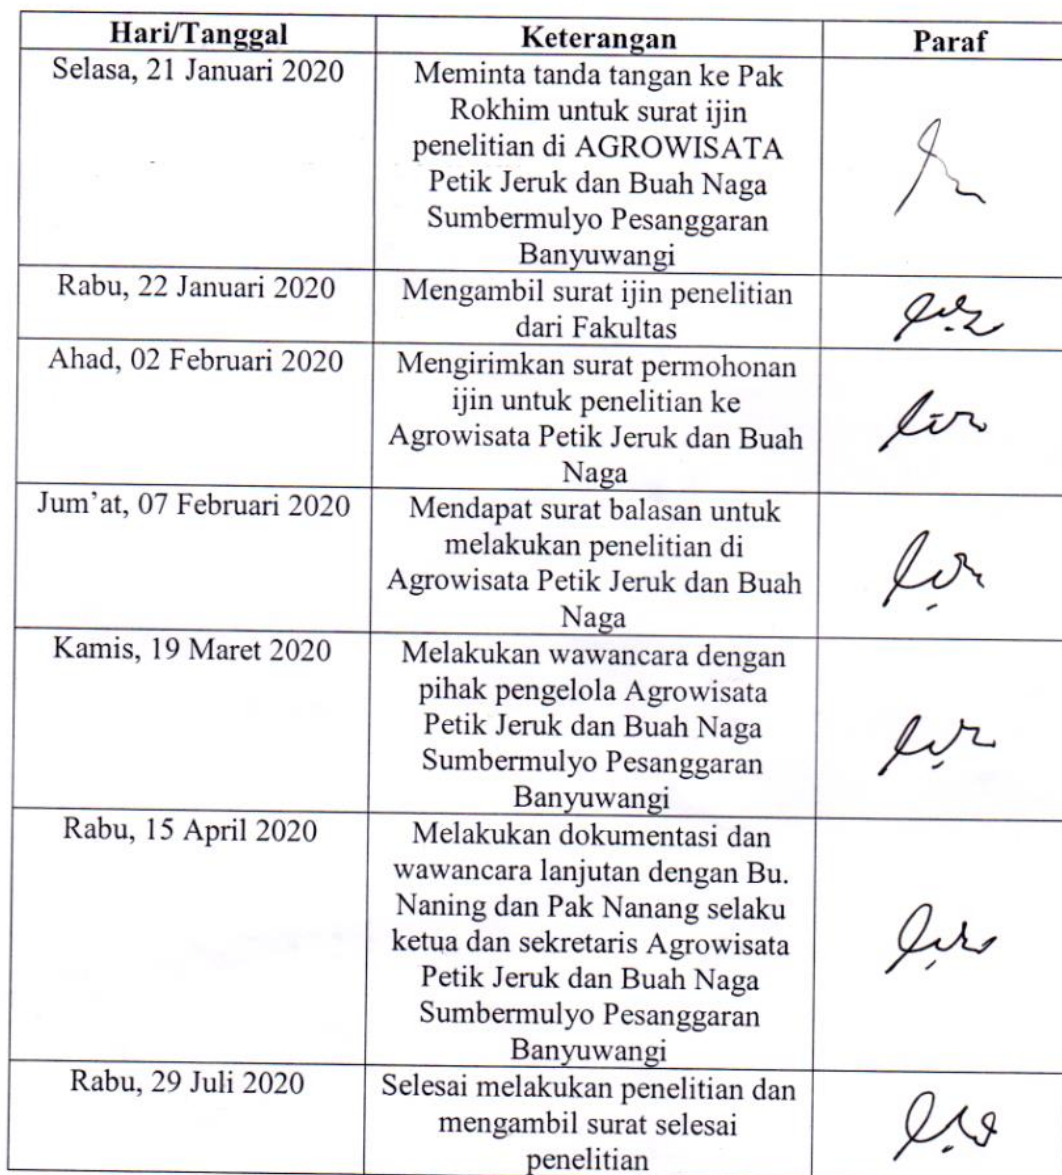 Hari/Tanggal Keterangan Paraf
Selasa, 21 Januari 2020 Meminta tanda tangan ke Pak
Rokhim untuk surat ijin
penelitian di AGROWISATA
Petik Jeruk dan Buah Naga
Sumbermulyo Pesanggaran
Banyuwangi
Rabu, 22 Januari 2020 Mengambil surat ijin penelitian
dari Fakultas
Ahad, 02 Februari 2020 Mengirimkan surat permohonan
ijin untuk penelitian ke
Agrowisata Petik Jeruk dan Buah
Naga
Jum'at, 07 Februari 2020 Mendapat surat balasan untuk
melakukan penelitian di
Agrowisata Petik Jeruk dan Buah
Naga
Kamis, 19 Maret 2020 Melakukan wawancara dengan
pihak pengelola Agrowisata
Petik Jeruk dan Buah Naga
Sumbermulyo Pesanggaran
Banyuwangi
Rabu, 15 April 2020 Melakukan dokumentasi dan
wawancara lanjutan dengan Bu.
Naning dan Pak Nanang selaku
ketua dan sekretaris Agrowisata
Petik Jeruk dan Buah Naga
Sumbermulyo Pesanggaran
Banyuwangi
Rabu, 29 Juli 2020 Selesai melakukan penelitian dan
mengambil surat selesai
penelitian